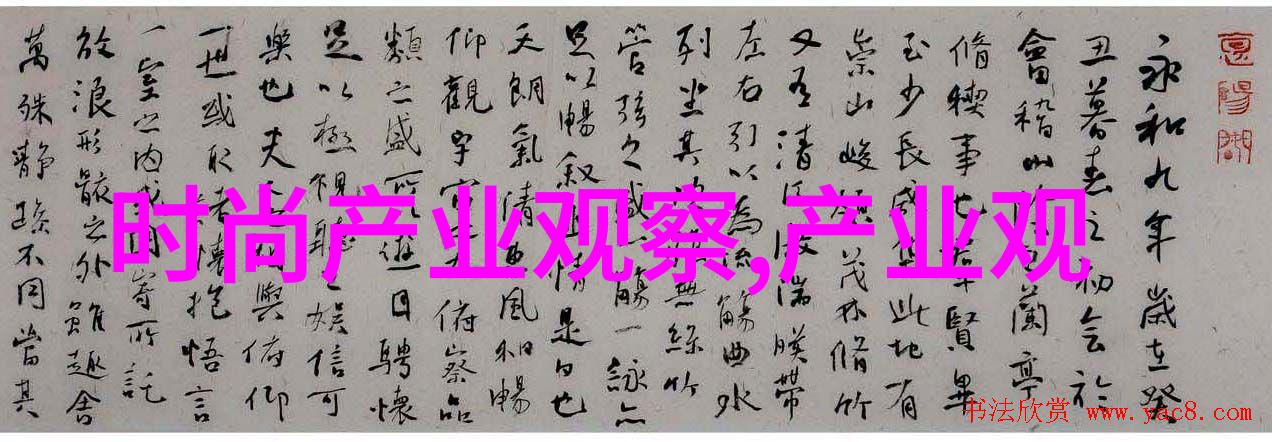 永和九年歲在癸
丑暮春之初会於
會稽山蘭亭
脩稧事也賢畢
至少長咸此地有
崇山峻領茂林脩竹
又有清激湍暎帶
左右引以為流觴曲水
列坐其無絲竹
管弦之盛一觴一詠亦
足以暢叙情是日也
天朗氣清惠風和暢
仰觀宇俯察品
類之盛所遊目騁懷
足以極視聽之娛信可
樂也夫與俯仰
一世或取懷抱悟言
一室之内寄所託
放浪形骸之外雖趣舍
萬殊静躁不同當其
时尚产业观察,产业观
书法欣赏 www.yac8.com